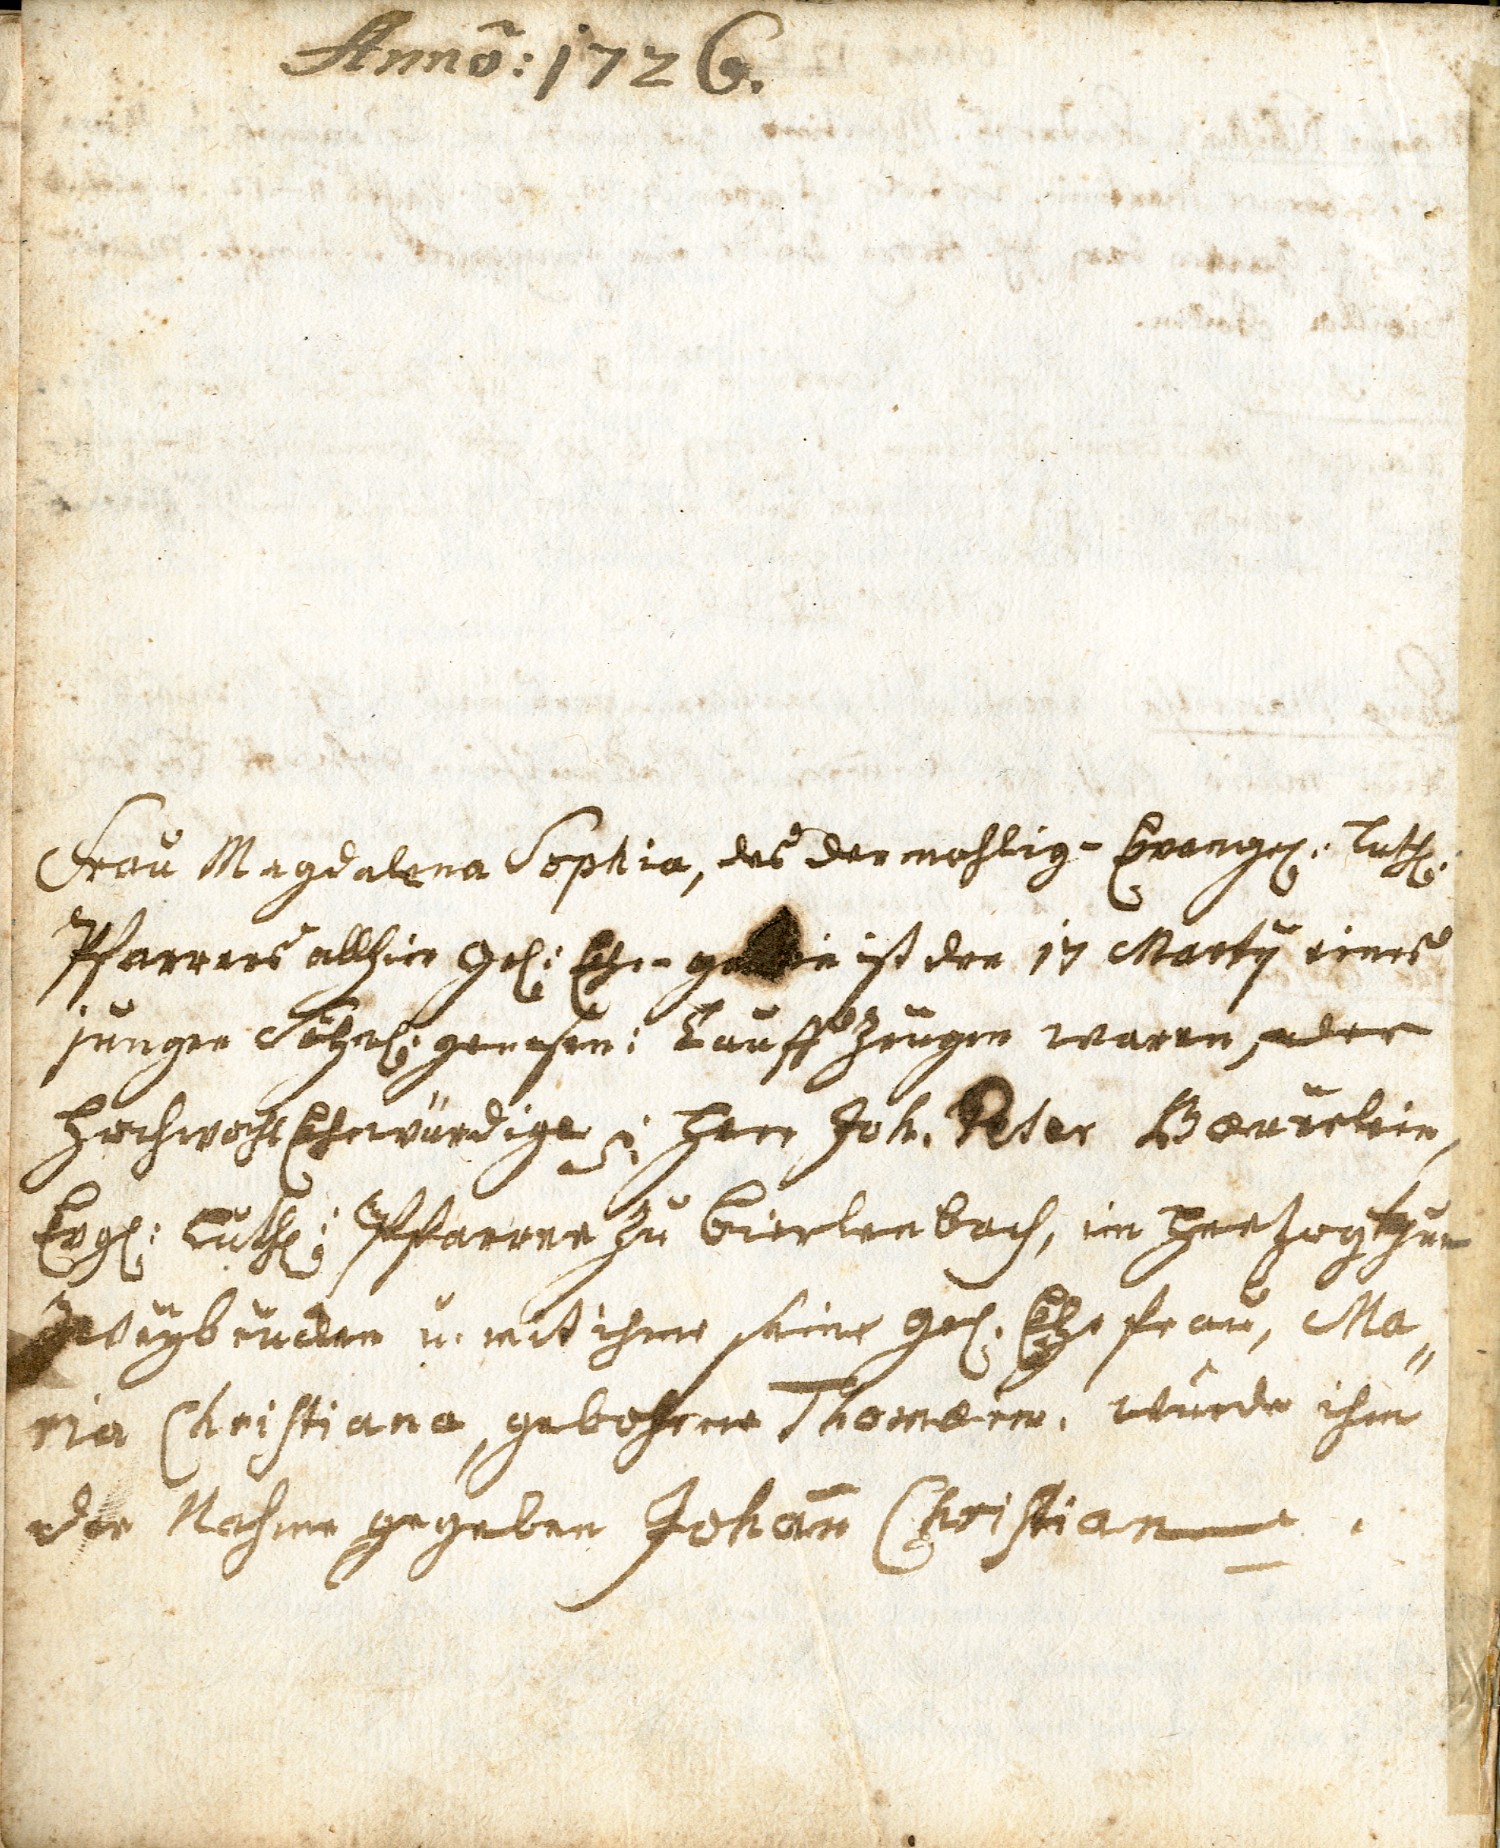 Anno: 1726.
Frau Magdalena Sophia, des dermahlig- Evangel: Luth:
Pfarrers allhier Ehl: Ehe- ist den 17 Marty eines
jungen Söhnl: genesen: Tauff Zeugen waren, der
HochwohlEhrwürdige Herr Joh. Peter Beürlein,
Evgl: Luth: Pfarrer zu Bierlenbach, im Hertzogthum
Zweybrücken u. mit ihme seine Ehl. Ehefrau, Ma„
ria Christiana, gebohrne Thomäin. wurde ihm
der Nahme gegeben Johann Christian .